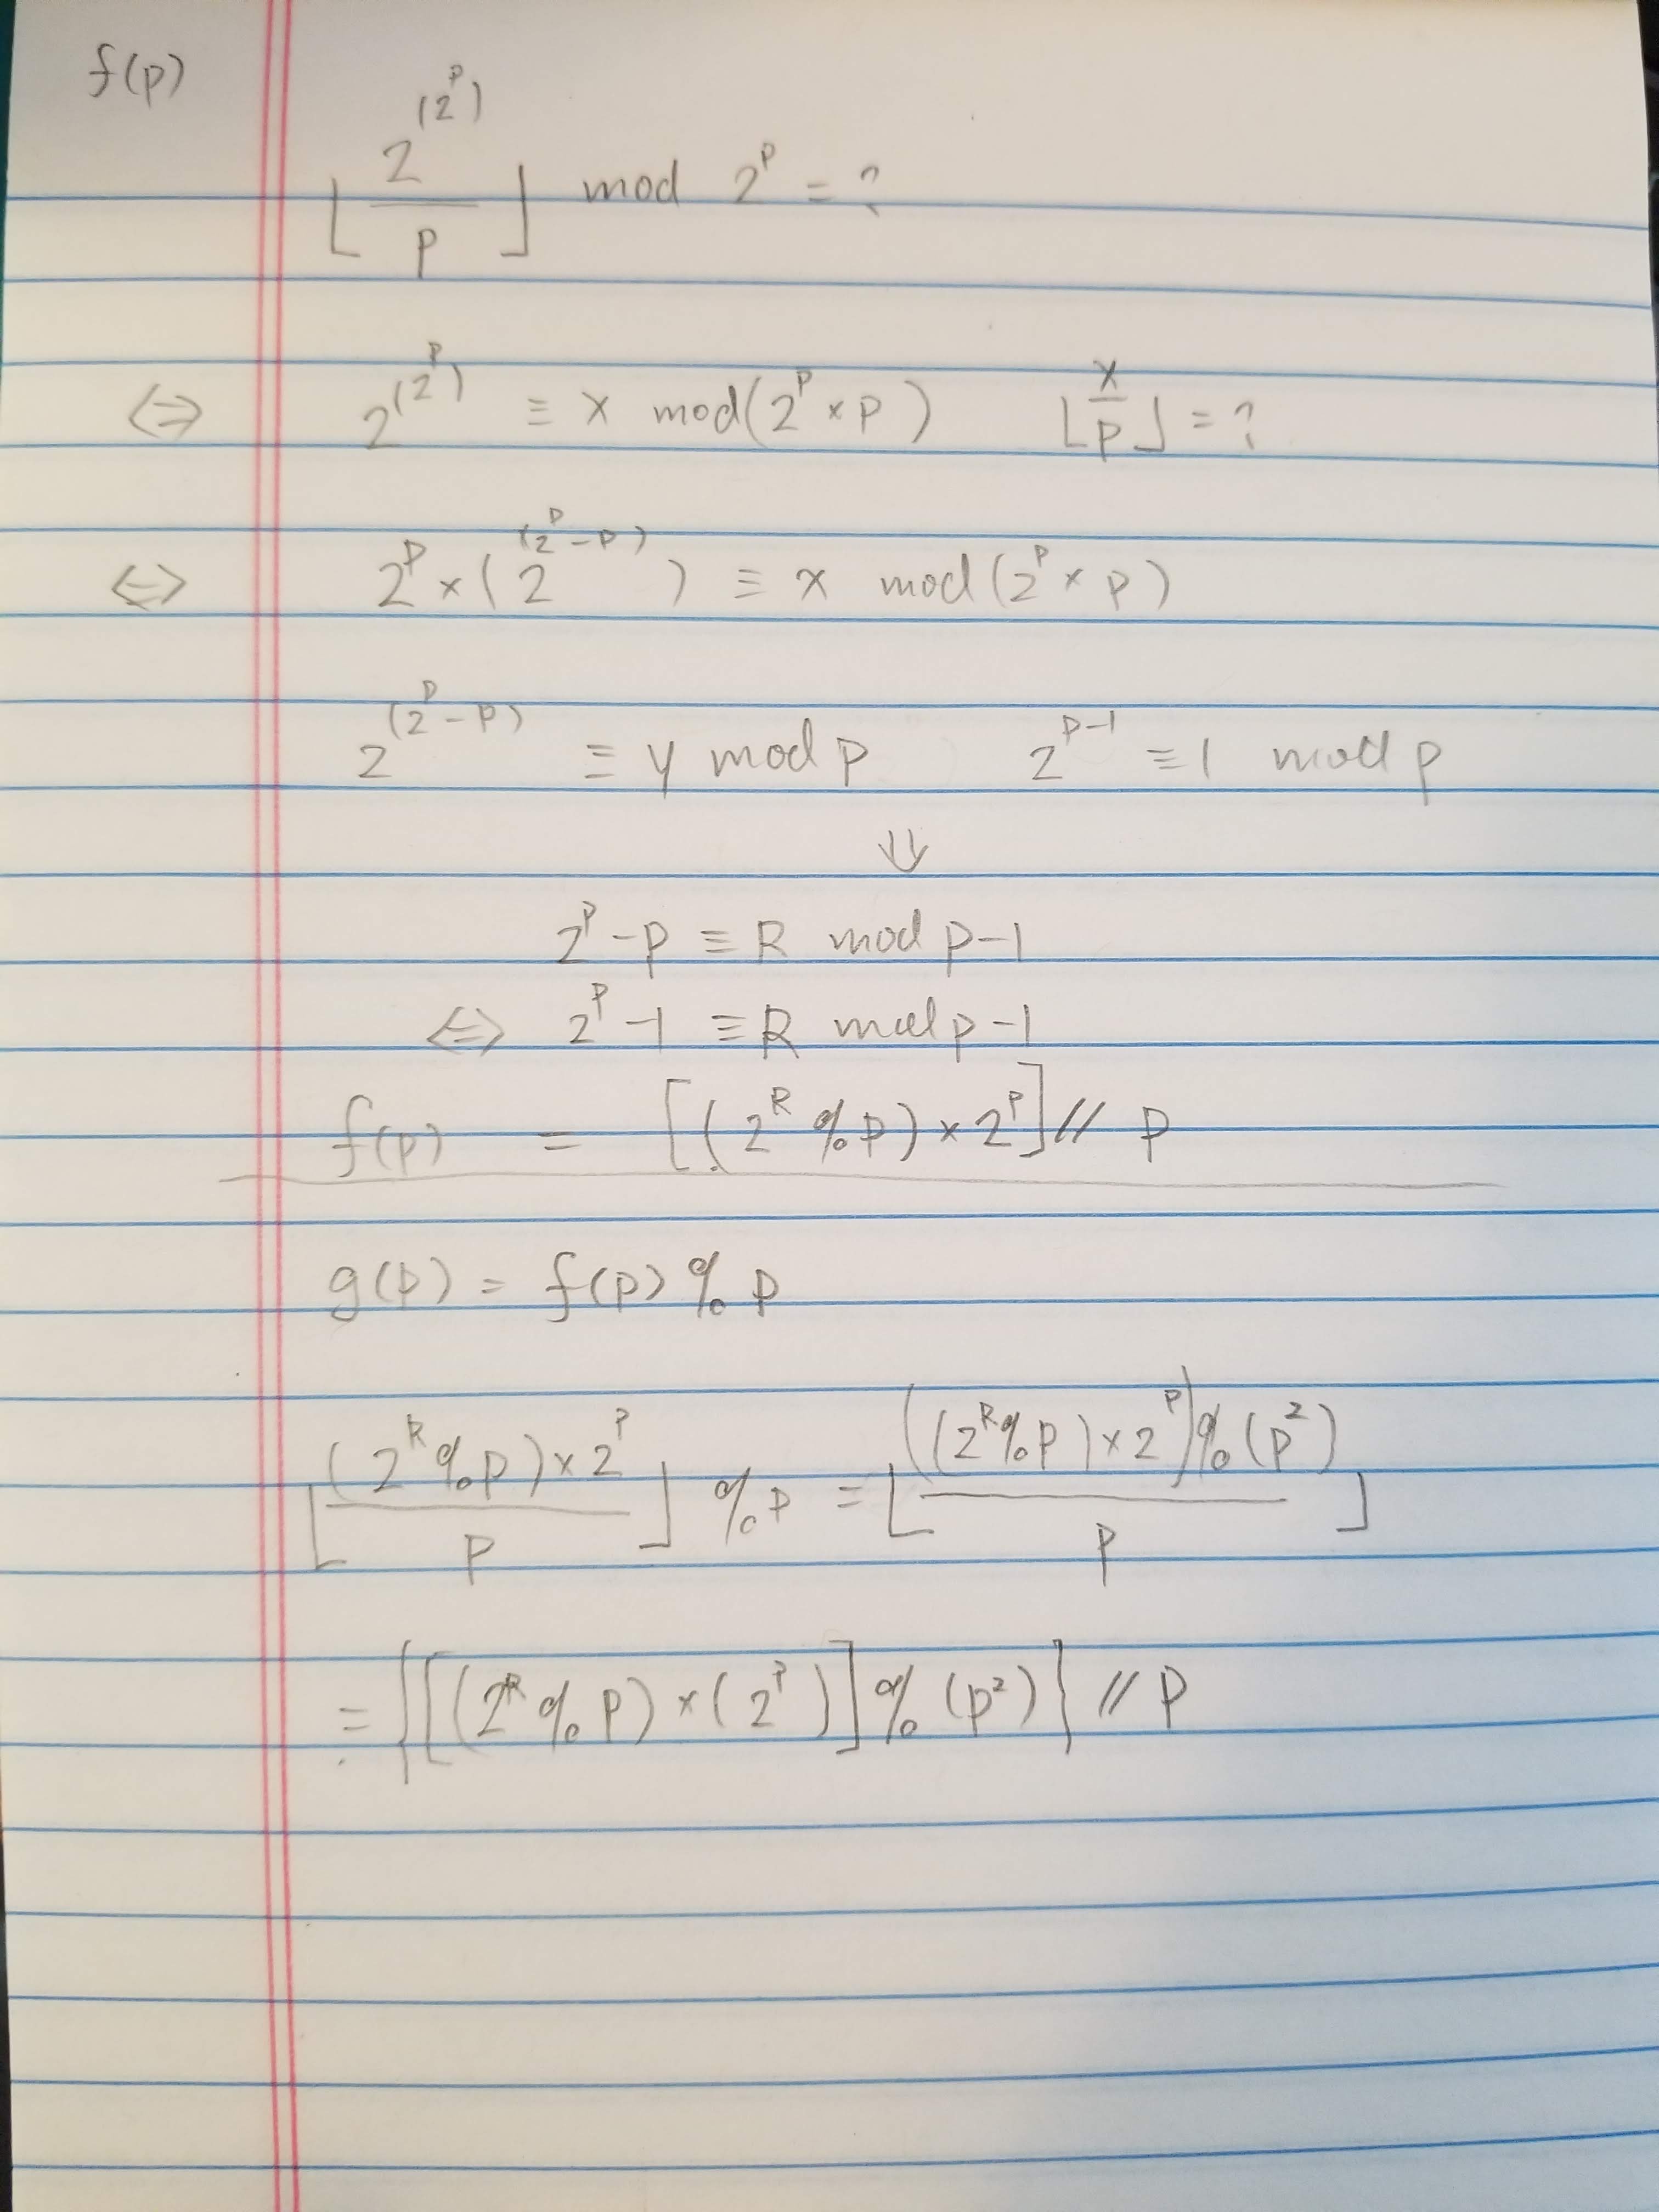 f(p)
⌊2^(2^p) / p⌋ mod 2^p = ?
⇔ 2^(2^p) ≡ x mod(2^p × p) ⌊x/p⌋ = ?
⇔ 2^p × (2^(2^p - p)) ≡ x mod(2^p × p)
2^(2^p - p) ≡ y mod p 2^(p-1) ≡ 1 mod p
⇓
2^p - p ≡ R mod p-1
⇔ 2^p - 1 ≡ R mod p-1
f(p) = [(2^R % p) × 2^p] // p
g(p) = f(p) % p
⌊(2^R % p) × 2^p / p⌋ % p = ⌊((2^R % p) × 2^p) % (p^2) / p⌋
= {[(2^R % p) × (2^p)] % (p^2)} // p